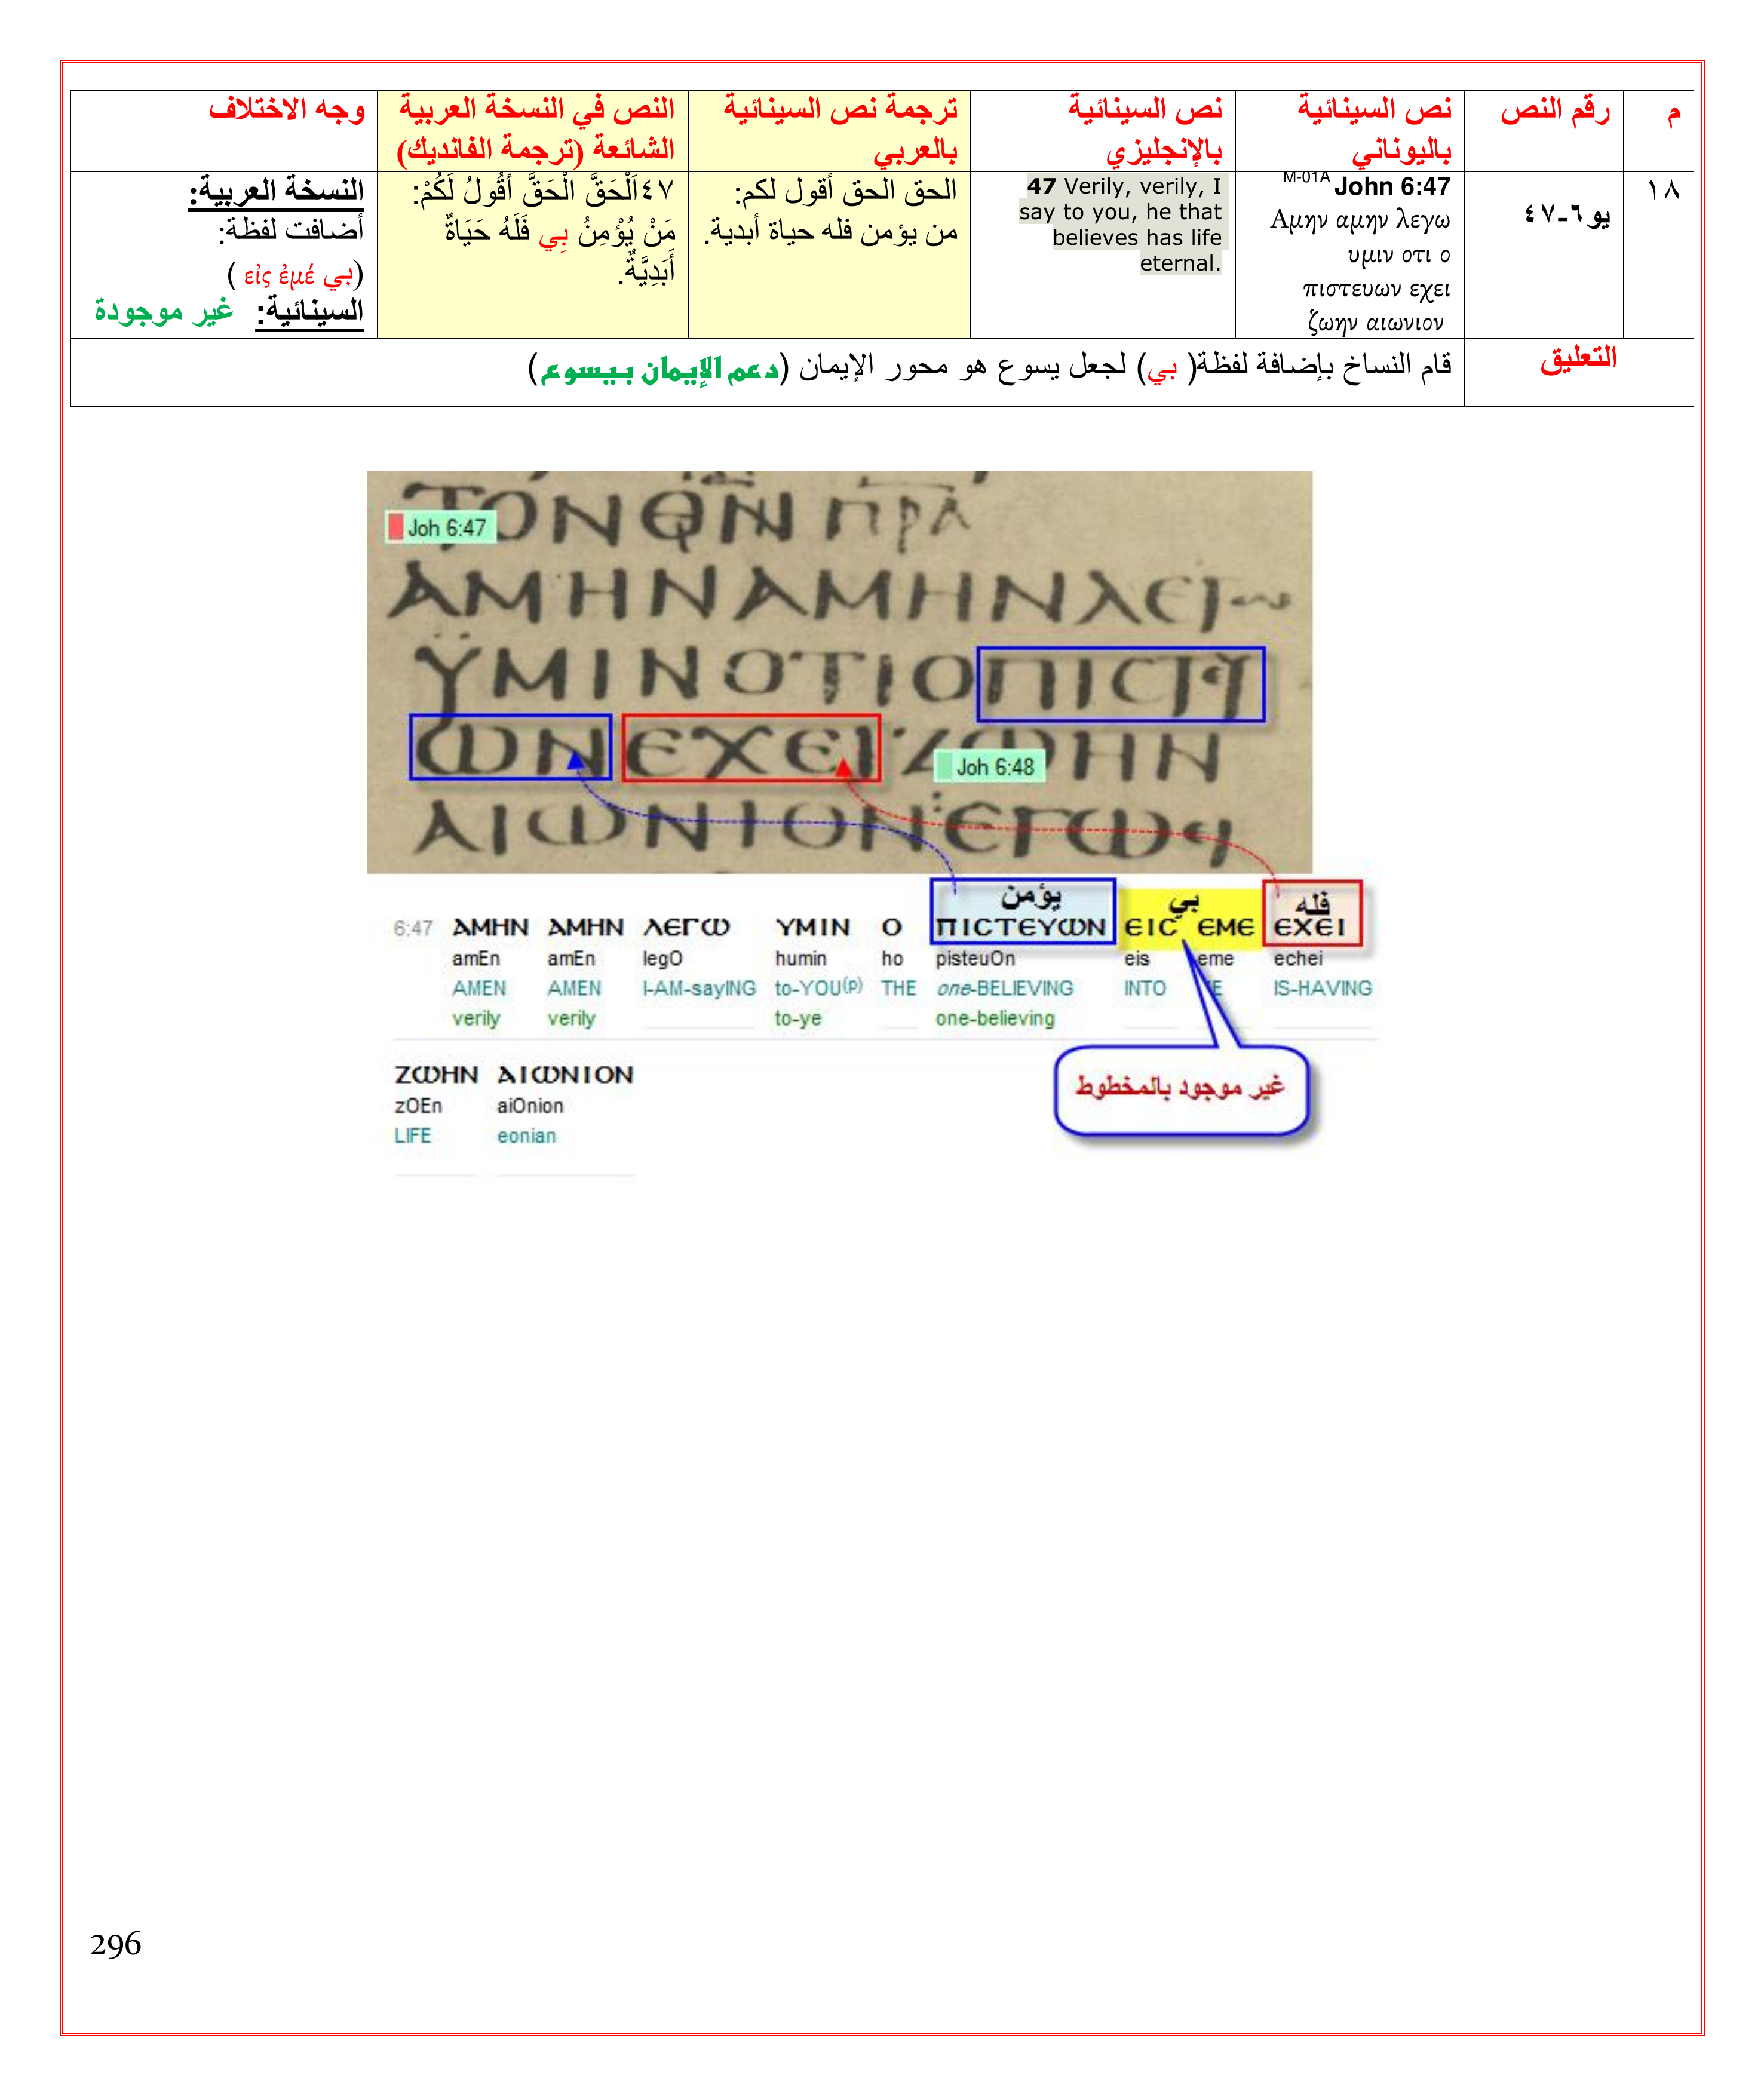 م
رقم النص
نص السينائية
باليوناني
نص السينائية
بالإنجليزي
ترجمة نص السينائية
بالعربي
النص في النسخة العربية
الشائعة (ترجمة الفانديك)
وجه الاختلاف
١٨
يو ٦-٤٧
M-01A John 6:47
Αμην αμην λεγω
υμιν οτι ο
πιστευων εχει
ζωην αιωνιον
47 Verily, verily, I
say to you, he that
believes has life
eternal.
الحق الحق أقول لكم:
من يؤمن فله حياة أبدية.
٤٧اَلْحَقَّ الْحَقَّ أَقُولُ لَكُمْ:
مَنْ يُؤْمِنُ بِي فَلَهُ حَيَاةٌ
أَبَدِيَّةٌ.
النسخة العربية:
أضافت لفظة:
(بي εἰς ἐμέ )
السينائية: غير موجودة
التعليق
قام النساخ بإضافة لفظة( بي) لجعل يسوع هو محور الإيمان (دعم الإيمان بيسوع)
ΤΟΝΘΝ ΠΡΑ
Joh 6:47
ΑΜΗΝΑΜΗΝΛΕΓω
ΫΜΙΝΟΤΙΟΠΙCΤΕΥ
ωΝΕΧΕΙΖωΗΝ
Joh 6:48
ΑΙωΝΙΟΝΕΓω
يؤمن بي فله
6:47 ΑΜΗΝ ΑΜΗΝ ΛΕΓω ΥΜΙΝ Ο ΠΙCΤΕΥωΝ ΕΙC ΕΜΕ ΕΧΕΙ
amEn amEn legO humin ho pisteuOn eis eme echei
AMEN AMEN I-AM-sayING to-YOU(p) THE one-BELIEVING INTO IS-HAVING
verily verily to-ye one-believing
غير موجود بالمخطوط
ΖωΗΝ ΑΙωΝΙΟΝ
zOEn aiOnion
LIFE eonian
296